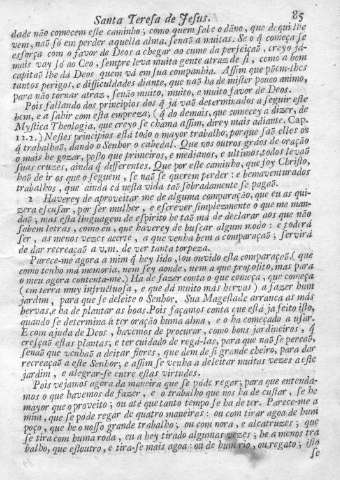 Santa Teresa de Jesus. 85
dade não começem esse caminho; como quem sabe o dãno, que de qui lhe
vem, naõ só em perder aquella alma, senaõ a muitas. Se o q̃ começa se
esforça com o favor de Deos a chegar ao cume da perfeiçaõ, creyo já-
mais vay só ao Ceo, sempre leva muita gente atras de si, como a bom
capitaõ lhe dá Deos quem vá em sua companhia. Assim que põem-lhe
tantos perigos, e difficuldades diante, que naõ ha de mister pouco animo,
para não tornar atras, senão muito, muito, e muito favor de Deos.
Pois fallando dos principios dos q̃ já vaõ determinados a seguir este
bem, e a sahir com esta empreza, (q̃ do demais, que começey a dizer, de
Mystica Theologia, que creyo se chama assim, direy mais adiante. Cap.
12.) Nestes principios está todo o mayor trabalho, por que saõ elles os
q̃ trabalhaõ, dando o Senhor o cabedal. Que nos outros gràos de oraçaõ
o mais he gozar, posto que primeiros, e medianos, e ultimos todos levaõ
suas cruzes, ainda q̃ differentes. Que por este caminho, que foy Christo,
haõ de ir os que o seguem, se naõ se querem perder: e bemaventurados
trabalhos, que ainda cá nesta vida taõ sobradamente se pagaõ.
2 Haverey de aproveitar me de alguma comparação, que eu as qui-
zera escusar, por ser mulher, e escrever simplesmente o que me man-
daõ, mas esta linguagem de espirito he taõ má de declarar aos que não
sabem letras, como eu, que haverey de buscar algum modo: e poderá
ser, as menos vezes acerte, a que venha bem a comparaçaõ; servirá
de dar recreaçaõ a vm. de ver tanta torpeza.
Parece-me agora a mim q̃ hey lido, (ou ouvido esta comparaçaõ (que
como tenho má memoria, nem sey aonde, nem a que proposito, mas para
o meu agora contenta-me) Ha de fazer conta o que começa, que começa
(em terra muy infructuosa, e que dá muito más hervas) a fazer hum
jardim, para que se deleite o Senhor. Sua Magestade arranca as más
hervas, e ha de plantar as boas. Pois façamos conta que está já feito isto,
quando se determina a ter oração huma alma, e o ha começado a usar.
E com ajuda de Deos, havemos de procurar, como bons jardineiros, q̃
cresçaõ estas plantas, e ter cuidado de regá-las, para que naõ se percaõ,
senaõ que venhaõ a deitar flores, que dem de si grande cheiro, para dar
recreaçaõ a este Senhor, e assim se venha a deleitar muitas vezes a este
jardim, e alegrar-se entre estas virtudes.
Pois vejamos agora da maneira que se póde regar, para que entenda-
mos o que havemos de fazer, e o trabalho que nos ha de custar, se he
mayor que o proveito; ou até que tanto tempo se ha de ter. Parece-me a
mim, que se póde regar de quatro maneiras: ou com tirar agoa de hum
poço, que he o nosso grande trabalho; ou com nora, e alcatruzes; que
se tira com huma roda, eu a hey tirado algumas vezes; he a menos tra
balho, que estoutro, e tira-se mais agoa: ou de hum rio, ou regato; isto
se